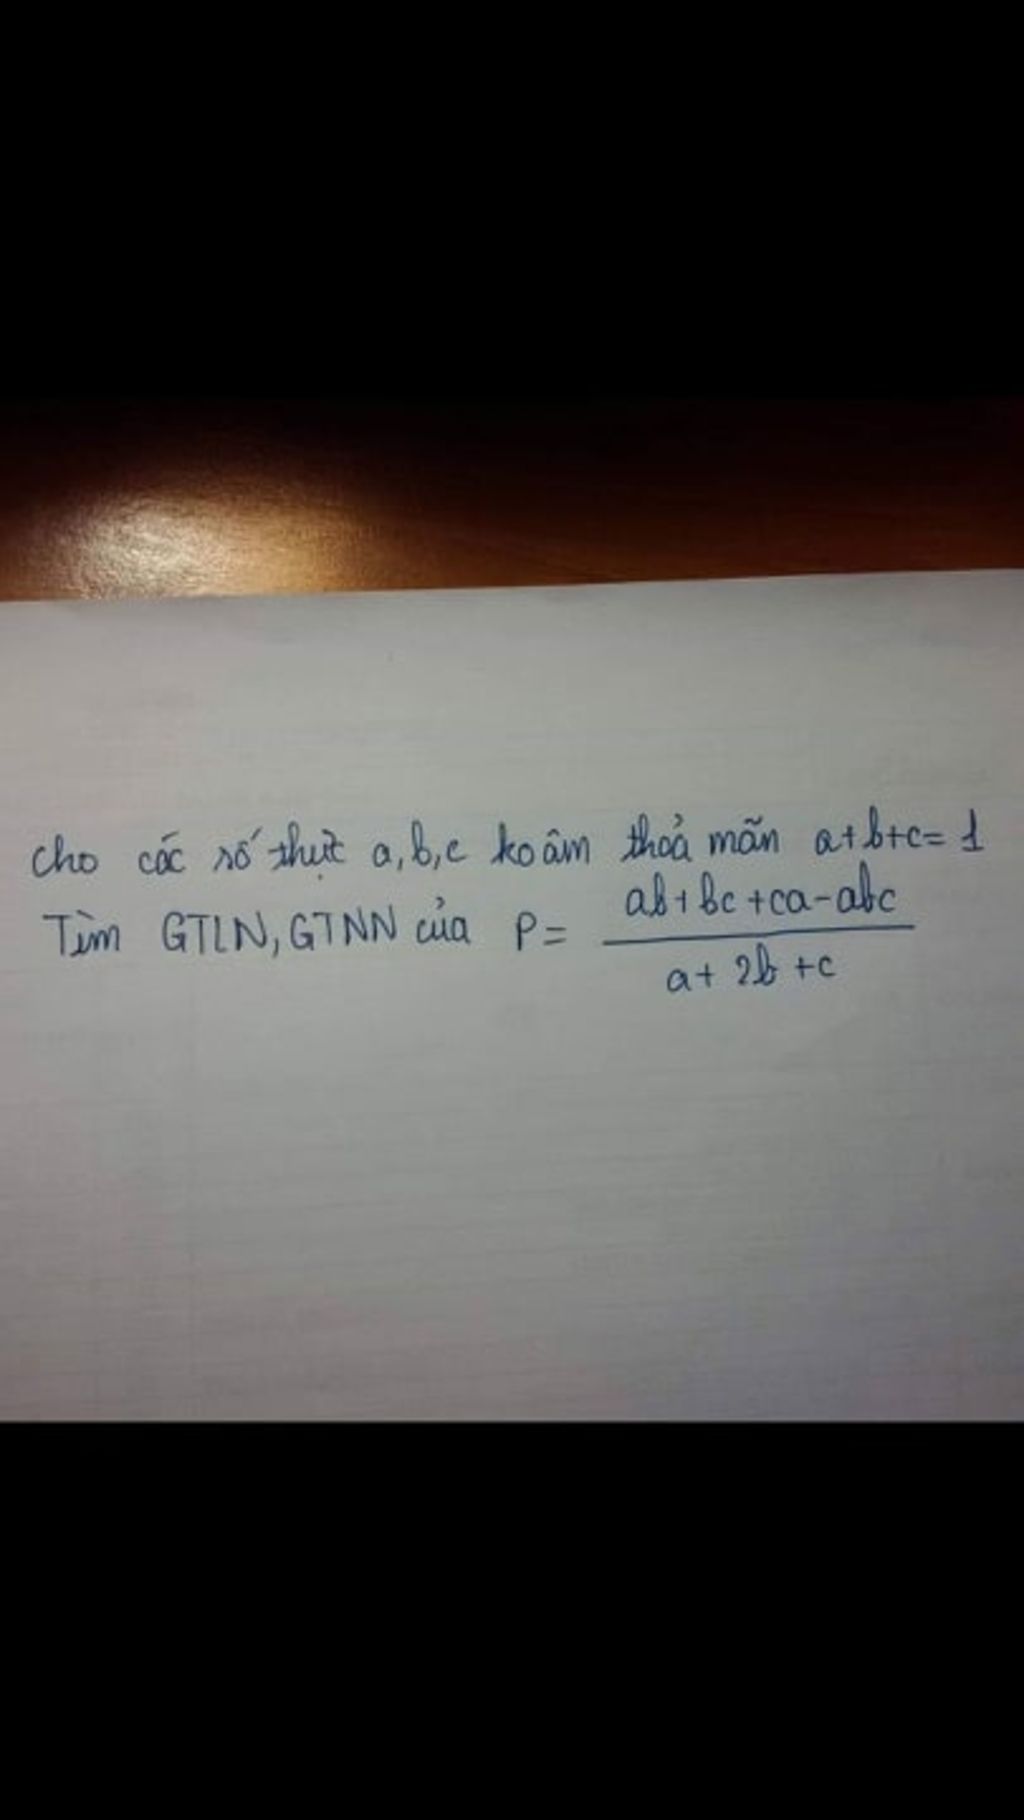 cho các số thực a,b,c ko âm thoả mãn a+b+c=1
Tìm GTLN, GTNN của P = \frac{ab+bc+ca-abc}{a+2b+c}